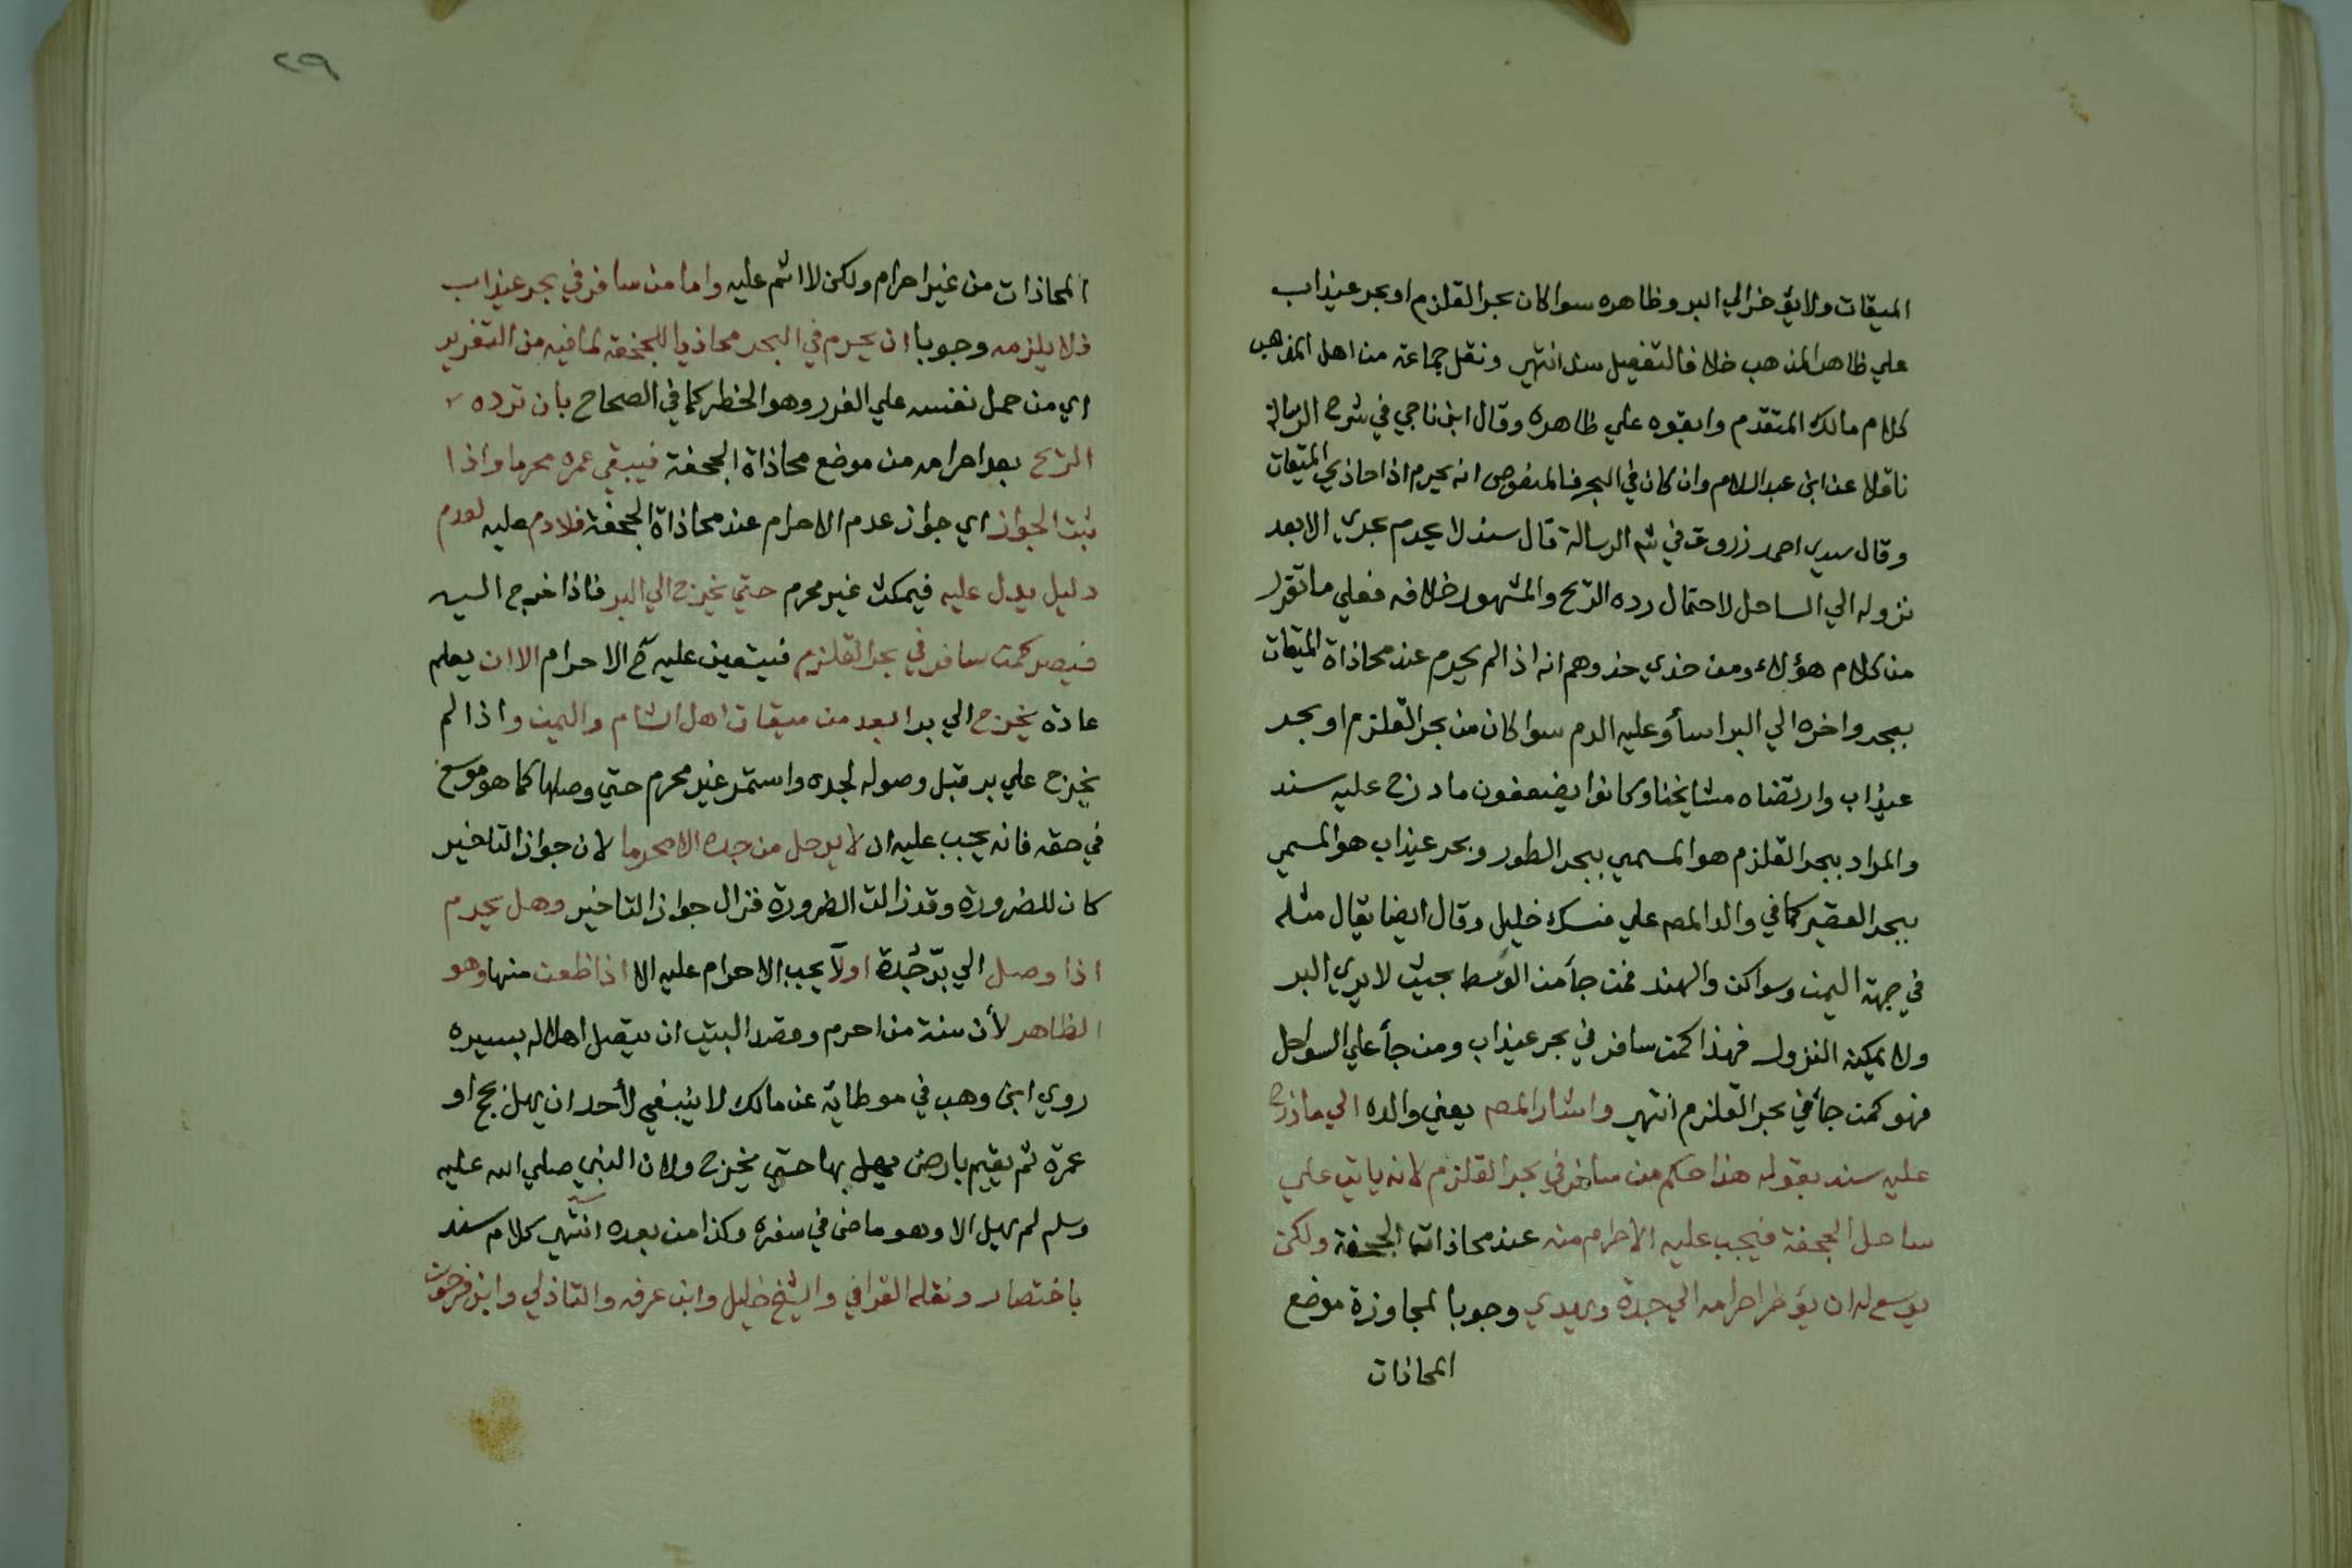 الميقات ولا يؤخر الي البر وظاهره سوا كان بحر القلزم او بحر عيذاب
علي ظاهر المذهب خلافا لتفصيل سند انتهي ونقل جماعة من اهل المذهب
كلام مالك المتقدم وابقوه علي ظاهره وقال ابن ناجي في شرح الرسالة
ناقلا عن ابن عبد السلام وان كان في البحر فالمنصوص انه يحرم اذا حاذي الميقات
وقال سيدي احمد زروق في شرح الرسالة قال سند لا يحرم بحري الا بعد
نزوله الي الساحل لاحتمال رده الريح والمشهور خلافه فعلي ما تقرر
من كلام هؤلاء ومن حذي حذوهم انه اذا لم يحرم عند محاذاة الميقات
ببحر واخره الي البر اسأ وعليه الدم سوا كان من بحر القلزم او بحر
عيذاب وارتضاه مشايخنا وكانوا يضعفون ما درج عليه سند
والمراد ببحر القلزم هو المسمي ببحر الطور وبحر عيذاب هو المسمي
ببحر القصير كما في والد المص علي منسك خليل وقال ايضا يقال مثله
في جهة اليمن وسواكن والهند فمن جأ من الوسط بحيث لا يري البر
ولا يمكنه النزول فهذا كمن سافر في بحر عيذاب ومن جأ علي السواحل
فهو كمن جأ في بحر القلزم انتهي واشار المص يعني والده الي ما درج
عليه سند بقوله هذا حكم من سافر في بحر القلزم لانه ياتي علي
ساحل الجحفة فيجب عليه الاحرام منه عند محاذاتها الجحفة ولكن
يوسع له ان يؤخر احرامه الي جدة ويهدي وجوبا لمجاوزة موضع
المحاذات
٢٩
المحاذات من غير احرام ولكن لا اثم عليه واما من سافر في بحر عيذاب
فلا يلزمه وجوبا ان يحرم في البحر محاذيا للجحفة لما فيه من التغرير
اي من حمل نفسه علي الغرر وهو الخطر كما في الصحاح بان ترده
الريح بعد احرامه من موضع محاذاة الجحفة فيبقي عمره محرما واذا
ثبت الجواز اي جواز عدم الاحرام عند محاذاة الجحفة فلا دم عليه لعدم
دليل يدل عليه فيمكث غير محرم حتي يخرج الي البر فاذا خرج اليه
فيصير كمن سافر في بحر القلزم فيتعين عليه ح الاحرام الا ان يعلم
عادة يخرج الي بر ابعد من ميقات اهل الشام واليمن واذا لم
يخرج علي بر قبل وصوله لجده واستمر غير محرم حتي وصلها كما هو موسع
في حقه فانه يجب عليه ان لا يرحل من جدة الا محرما لان جواز التاخير
كان للضرورة وقد زالت الضرورة فزال جواز التاخير وهل يحرم
اذا وصل الي برّ جُدة اولا يجب الاحرام عليه الا اذا ظعن منها وهو
الظاهر لأن سنة من احرم وقصد البيت ان يتصل اهلاله بسيره
روي ابن وهب في موطائه عن مالك لا ينبغي لأحد ان يهل بحج او
عمرة ثم يقيم بارض يهل بها حتي يخرج ولان النبي صلي الله عليه
وسلم لم يهل الا وهو ماض في سفره وكذا من بعده انتهي كلام سند
باختصار ونقله القرافي والشيخ خليل وابن عرفه والتاذلي وابن فرحون